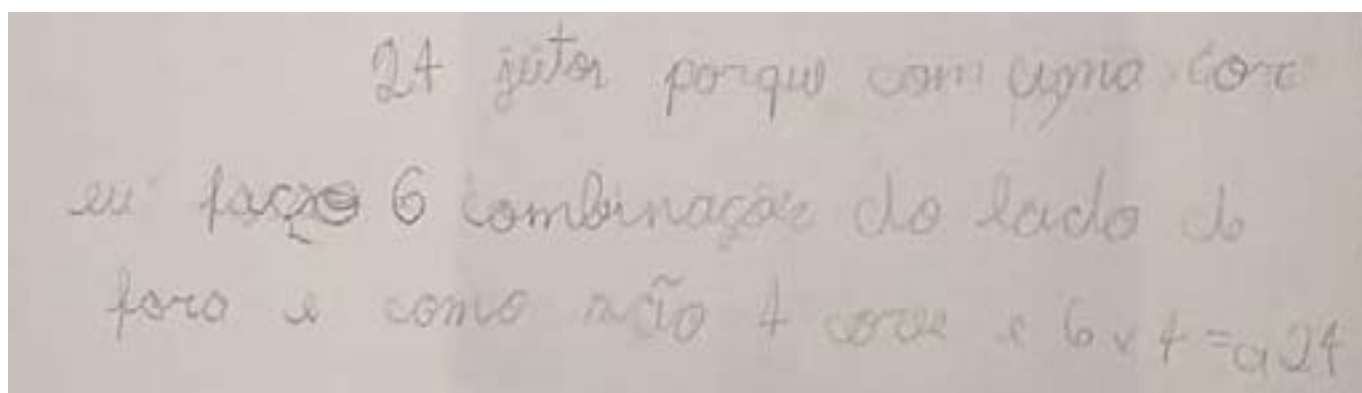 24 jeitos porque com uma cor
eu faço 6 combinaçõe do lado de
fora e como são 4 core e 6 x 4 = a 24